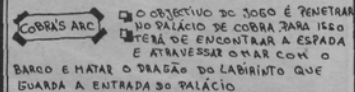 COBRA'S ARC
O OBJECTIVO DO JOGO É PENETRAR
NO PALÁCIO DE COBRA PARA ISSO
TERÁ DE ENCONTRAR A ESPADA
E ATRAVESSAR O MAR COM O
BARCO E MATAR O DRAGÃO DO LABIRINTO QUE
GUARDA A ENTRADA DO PALÁCIO